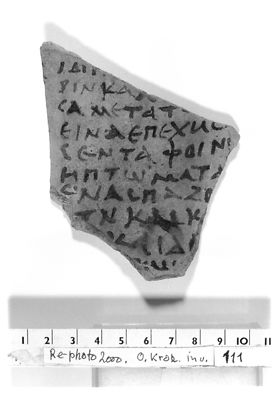 ΡΙΝΚΑ
CΑΜΕΤΑΤ
ΕΙΝΑΕΠΕΧΗ
CΕΝΤΑΦΟΙΝ
ΗΠΤΩΜΑΤΑ
ΝΑCΠΑΖ
ΚΑΙΚ
ΙΔ
1 2 3 4 5 6 7 8 9 10 11
Re-photo 2000. O. Krok. inv. 111